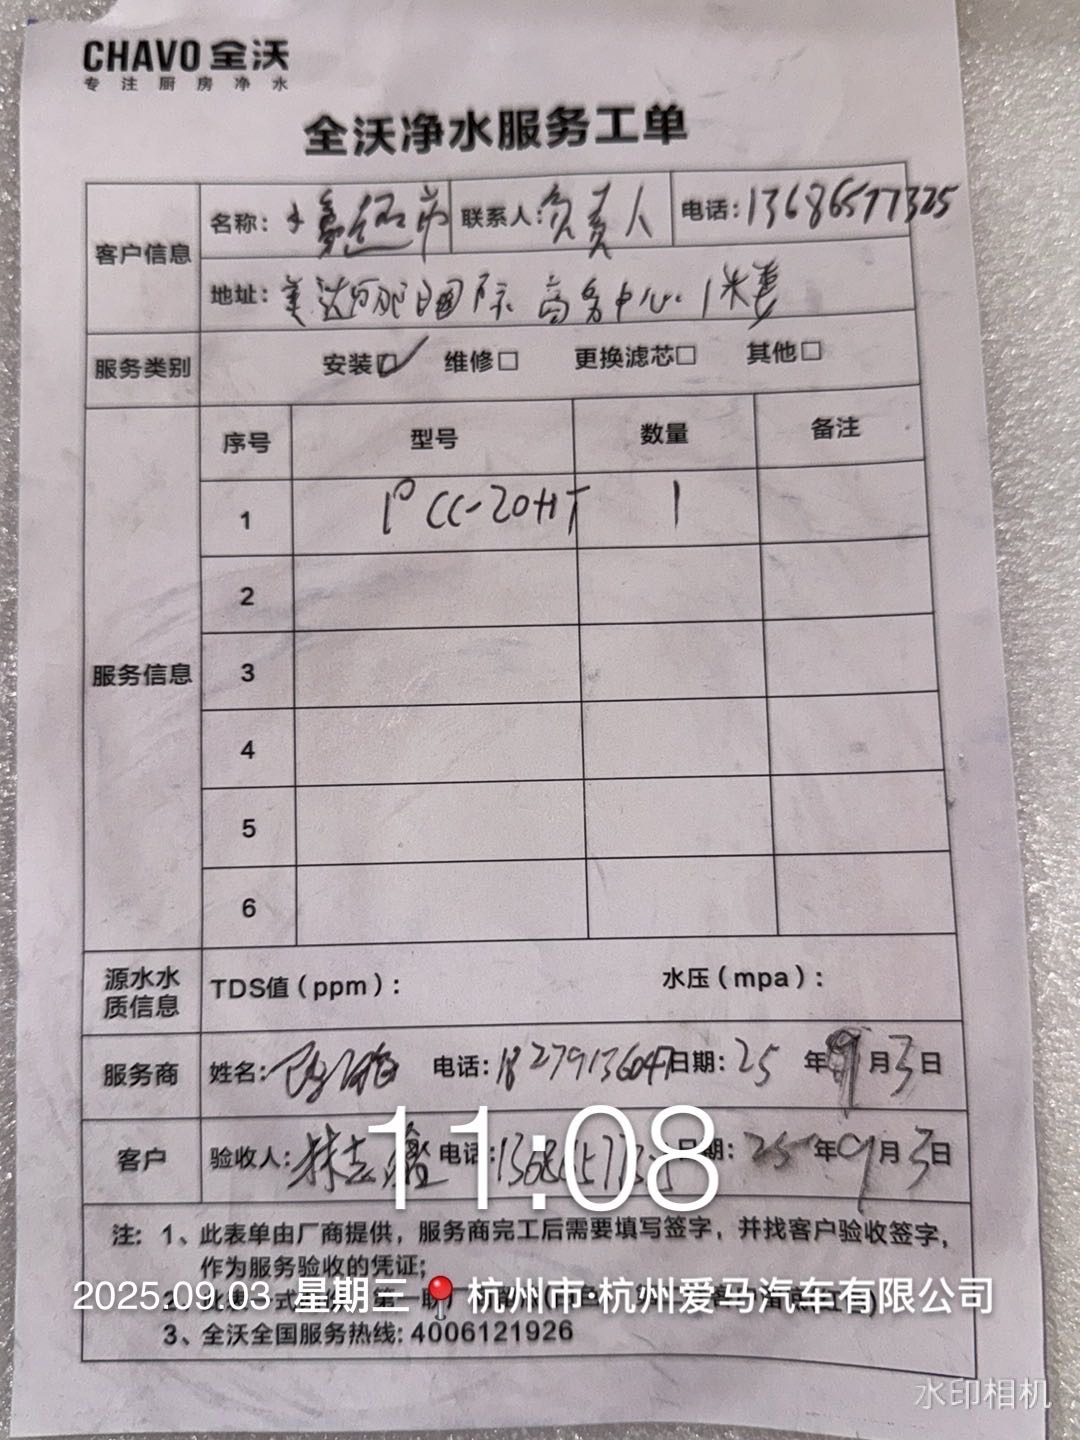 CHAVO 全沃
专注厨房净水
全沃净水服务工单
客户信息 名称: 超市 联系人: 负责人 电话: 13686577325
地址: 国际商务中心 1米
服务类别 安装☑ 维修□ 更换滤芯□ 其他□
服务信息 序号 型号 数量 备注
1 CC-20HT 1
2
3
4
5
6
源水水质信息 TDS值(ppm): 水压(mpa):
服务商 姓名: 电话: 18279136047 日期: 25年9月3日
客户 验收人: 林 电话: 日期: 25年9月3日
11:08
注: 1、此表单由厂商提供，服务商完工后需要填写签字，并找客户验收签字，
作为服务验收的凭证;
2025.09.03 星期三 杭州市·杭州爱马汽车有限公司
3、全沃全国服务热线: 4006121926
水印相机